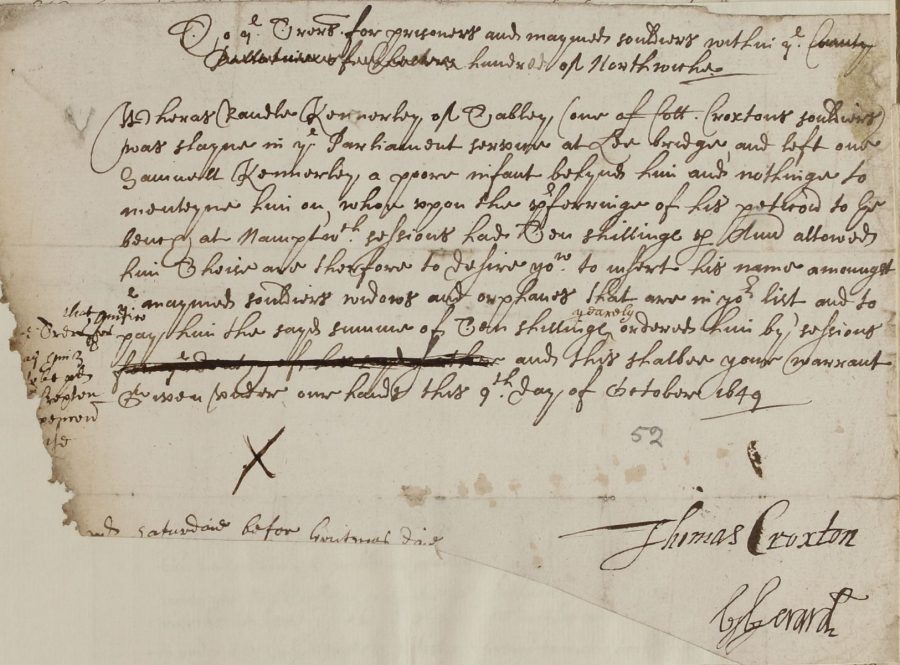 To ye Trers for prisoners and maymed souldiers within ye County
hundred of Northwiche
Wheras Randle Kennerley of Tabley, (one of Coll. Croxtons souldiers)
was slayne in ye Parliament servise at Lee bridge, and left one
Samuell Kennerley, a poore infant behynd him and nothinge to
menteyne him on, whoe upon the pferringe of his peticon to the
bench at Namptwch sessions had Ten shillings p Ann allowed
him Theise are therefore to desire yow to insert his name amoungst
ye maymed souldiers widows and orphanes that are in yor list and to
pay him the sayd summe of Ten shillings yearely ordered him by sessions
and this shalbee your warrant
Given under our hands this 9th day of October 1649
that
52
Saturdaie befor
Thomas Croxton